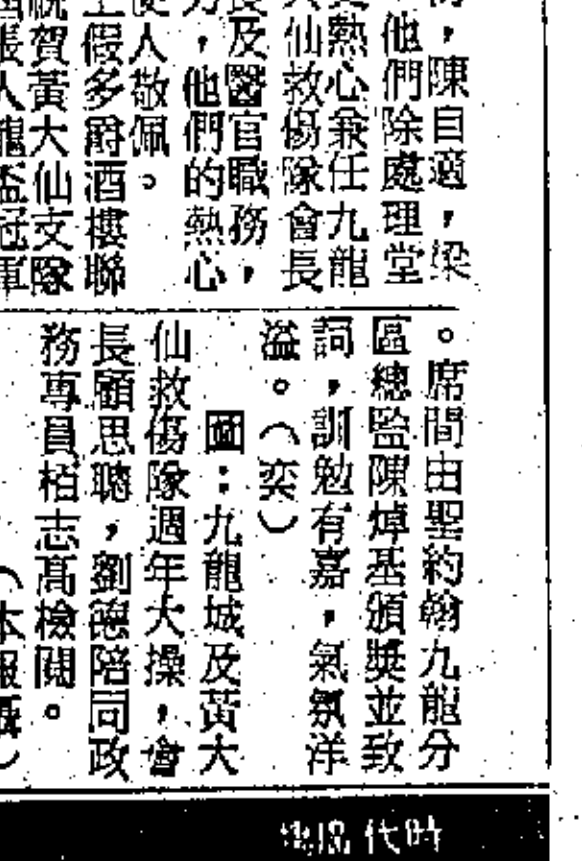 ，陳自適，梁
他們除處理堂
熱心兼任九龍
仙救傷隊會長
及醫官職務，
，他們的熱心
人敬佩。
假多爵酒樓聯
賀黃大仙支隊
人龍盃冠軍
。席間由聖約翰九龍分
區總監陳焯基頒獎並致
詞，訓勉有嘉，氣氛洋
溢。（奕）
圖：九龍城及黃大
仙救傷隊週年大操，會
長顧思聰，劉德陪同政
務專員栢志高檢閱。
（本報攝）
時代